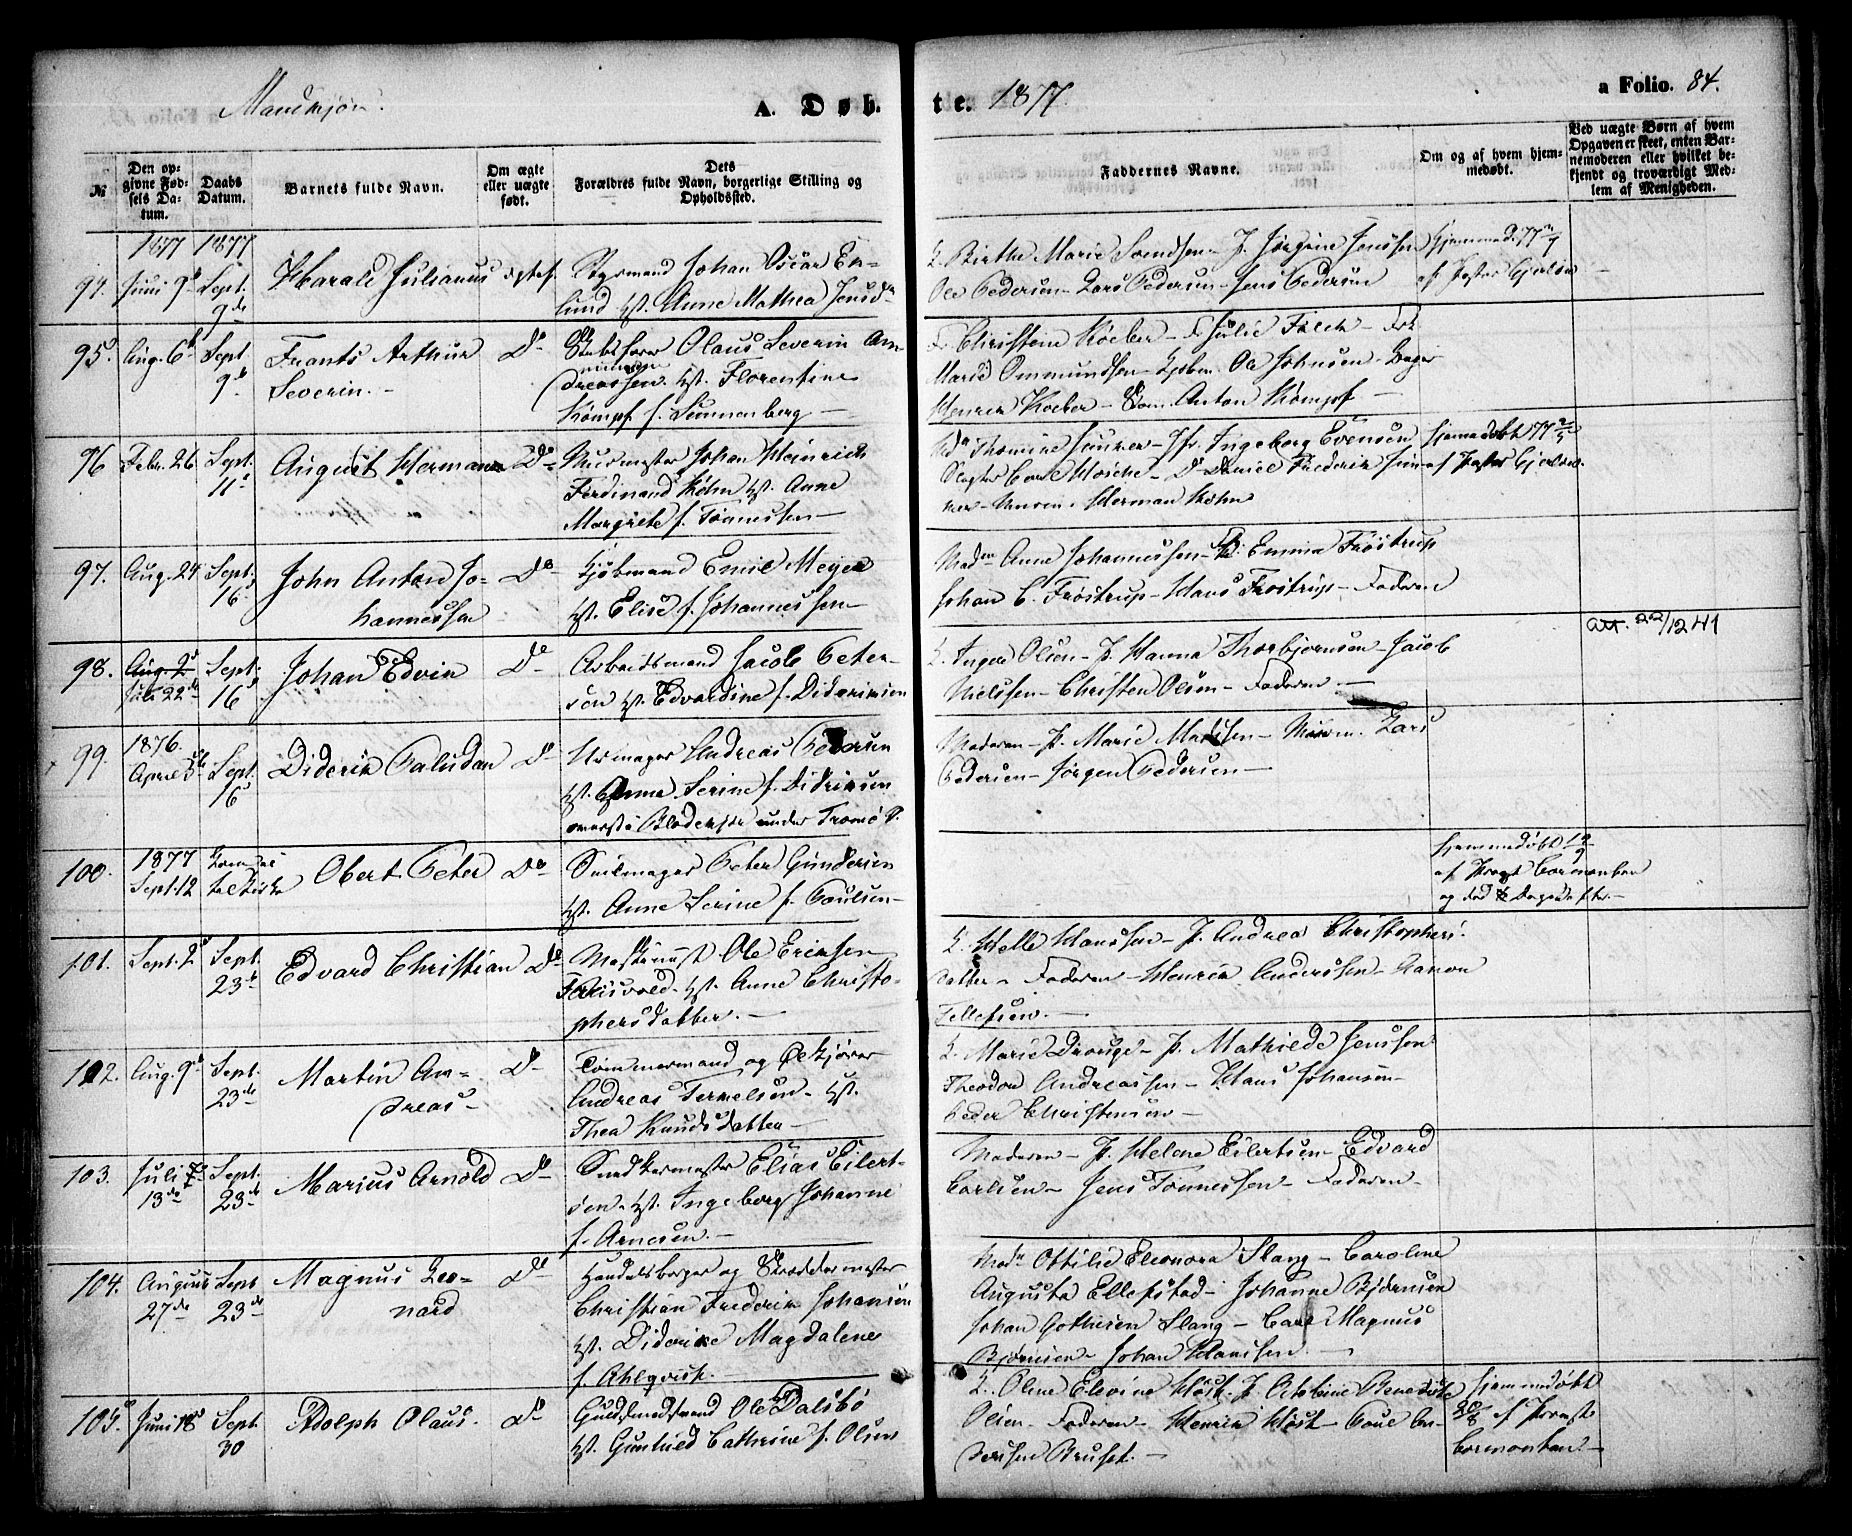 Mandkjøn.
A. Døb-
te. 1877.
a Folio. 84.
№
Den opgivne Fødsels Datum.
Daabs Datum.
Barnets fulde Navn.
Om ægte eller uægte født.
Dets Forældres fulde Navn, borgerlige Stilling og Opholdssted.
Faddernes Navne.
Om og af hvem hjemmedøbt.
Ved uægte Børn af hvem Opgaven er skeet, enten Barnemoderen eller hvilket bekjendt og troværdigt Medlem af Menigheden.
1877 1877
94. Juni 9 Sept. 9de
Harald Julianus ægtef.
Styrmand Johan Oscar En-
lund Hst. Anne Mathea Jensdr
K. Birthe Marie Svendsen - P. Jørgine Jenssen
Ole Pedersen - Lars Pedersen - Jens Pedersen
Hjemmed. 77
af Pastor
95. Aug. 6 Sept 9de
Frants Arthur
Severin. -
Do
Olaus Severin An-
dreassen. Hst. Florentine
Kömpf f. Sonnenberg -
F. Christine Köeber - F. Julie Falck - Frk
Marie Ommundsen - Kjøbm. Ole Johnsen - Bager
Henrik Koeber - Anton Kömpf -
96 Febr. 26 Sept. 11
August Herman Do
Murmester Johan Heinrich
Ferdinand Köhn Hst. Anne
Margrete f. Tønnessen -
Thomine - Jfr. Ingeborg Evensen
Slagter Carl - Daniel Frederik
- Herman Köhn
Hjemmedøbt 77
af Pastor
97. Aug. 24 Sept. 16
John Anton Jo-
hannessen
Do
Kjøbmand Emil Meyer
Hst. Elise f. Johannessen
Madm Anne Johannessen - Emma Frøstrup
Johan C. Frøstrup - Hans Frøstrup - Faderen
att. 22/12 41
98. Aug. 2 Juli 22de Sept. 16
Johan Edvin Do
Arbeidsmand Jacob Peter-
sen Hst. Edvardine f. Didriksen
K. Inger Olsen - P. Hanna Thorbjørnsen - Jacob
Nielsen - Christen Olsen - Faderen -
99. 1876. April 5 Sept. 16
Diderik Paludan Do
Urmager Andreas Pedersen
Hst. Anna Serine f. Didriksen
under Tromø S.
Moderen - P. Marie Madsen - Lars
Pedersen - Jørgen Pedersen -
100. 1877 Sept. 12
Kom ei til Kirke
Obert Peter Do
Seilmager Peter Gundersen
Hst. Anne Serine f. Poulsen -
Hjemmedøbt
af Provst Cormontan
og død Dagen efter. -
101. Sept. 2 Sept. 23de
Edvard Christian Do
Maskinist Ole Eriksen
Hst. Anne Christo-
phersdatter. -
K. Helle Hanssen - P. Andrea Christophers-
datter - Faderen - Henrik Anderssen - Aanon
Tellefsen. -
102. Aug. 9 Sept. 23de
Martin An-
dreas -
Do
Tømmermand og
Andreas Terkelsen - Hst.
Thea Knudsdatter -
K. Marie - P. Mathilde Jenssen
Theodor Andreassen - Hans Johansen -
Peder Christensen -
103. Juli 13de Sept. 23de
Marius Arnold Do
Snedkermester Elias Eilert-
sen - Hst. Ingeborg Johanne
f. Arnesen. -
Moderen - P. Helene Eilertsen - Edvard
Carlsen - Jens Tønnessen - Faderen -
104. August 27de Sept. 23de
Magnus Leo-
nard
Do
Handelsborger og Skræddermester
Christian Frederik Johansen
Hst. Didrike Magdalene
f. Ahlqvist. -
Madm Ottilie Eleonora Slang - Caroline
Augusta Ellefstad - Johanne Bjørnsen
Johan Slang - Carl Magnus
Bjørnsen - Johan Hanssen. -
105. Juni 18 Sept 30
Adolph Olaus. Do
Ole Dalsbø
Hst. Gunhild Cathrine f. Olsen
K. Olene Elevine Høst - P. Octobine Benedicte
Olsen - Faderen - Henrik Høst - Poul An-
dersen -
Hjemmedøbt
af Provst
Cormontan. -